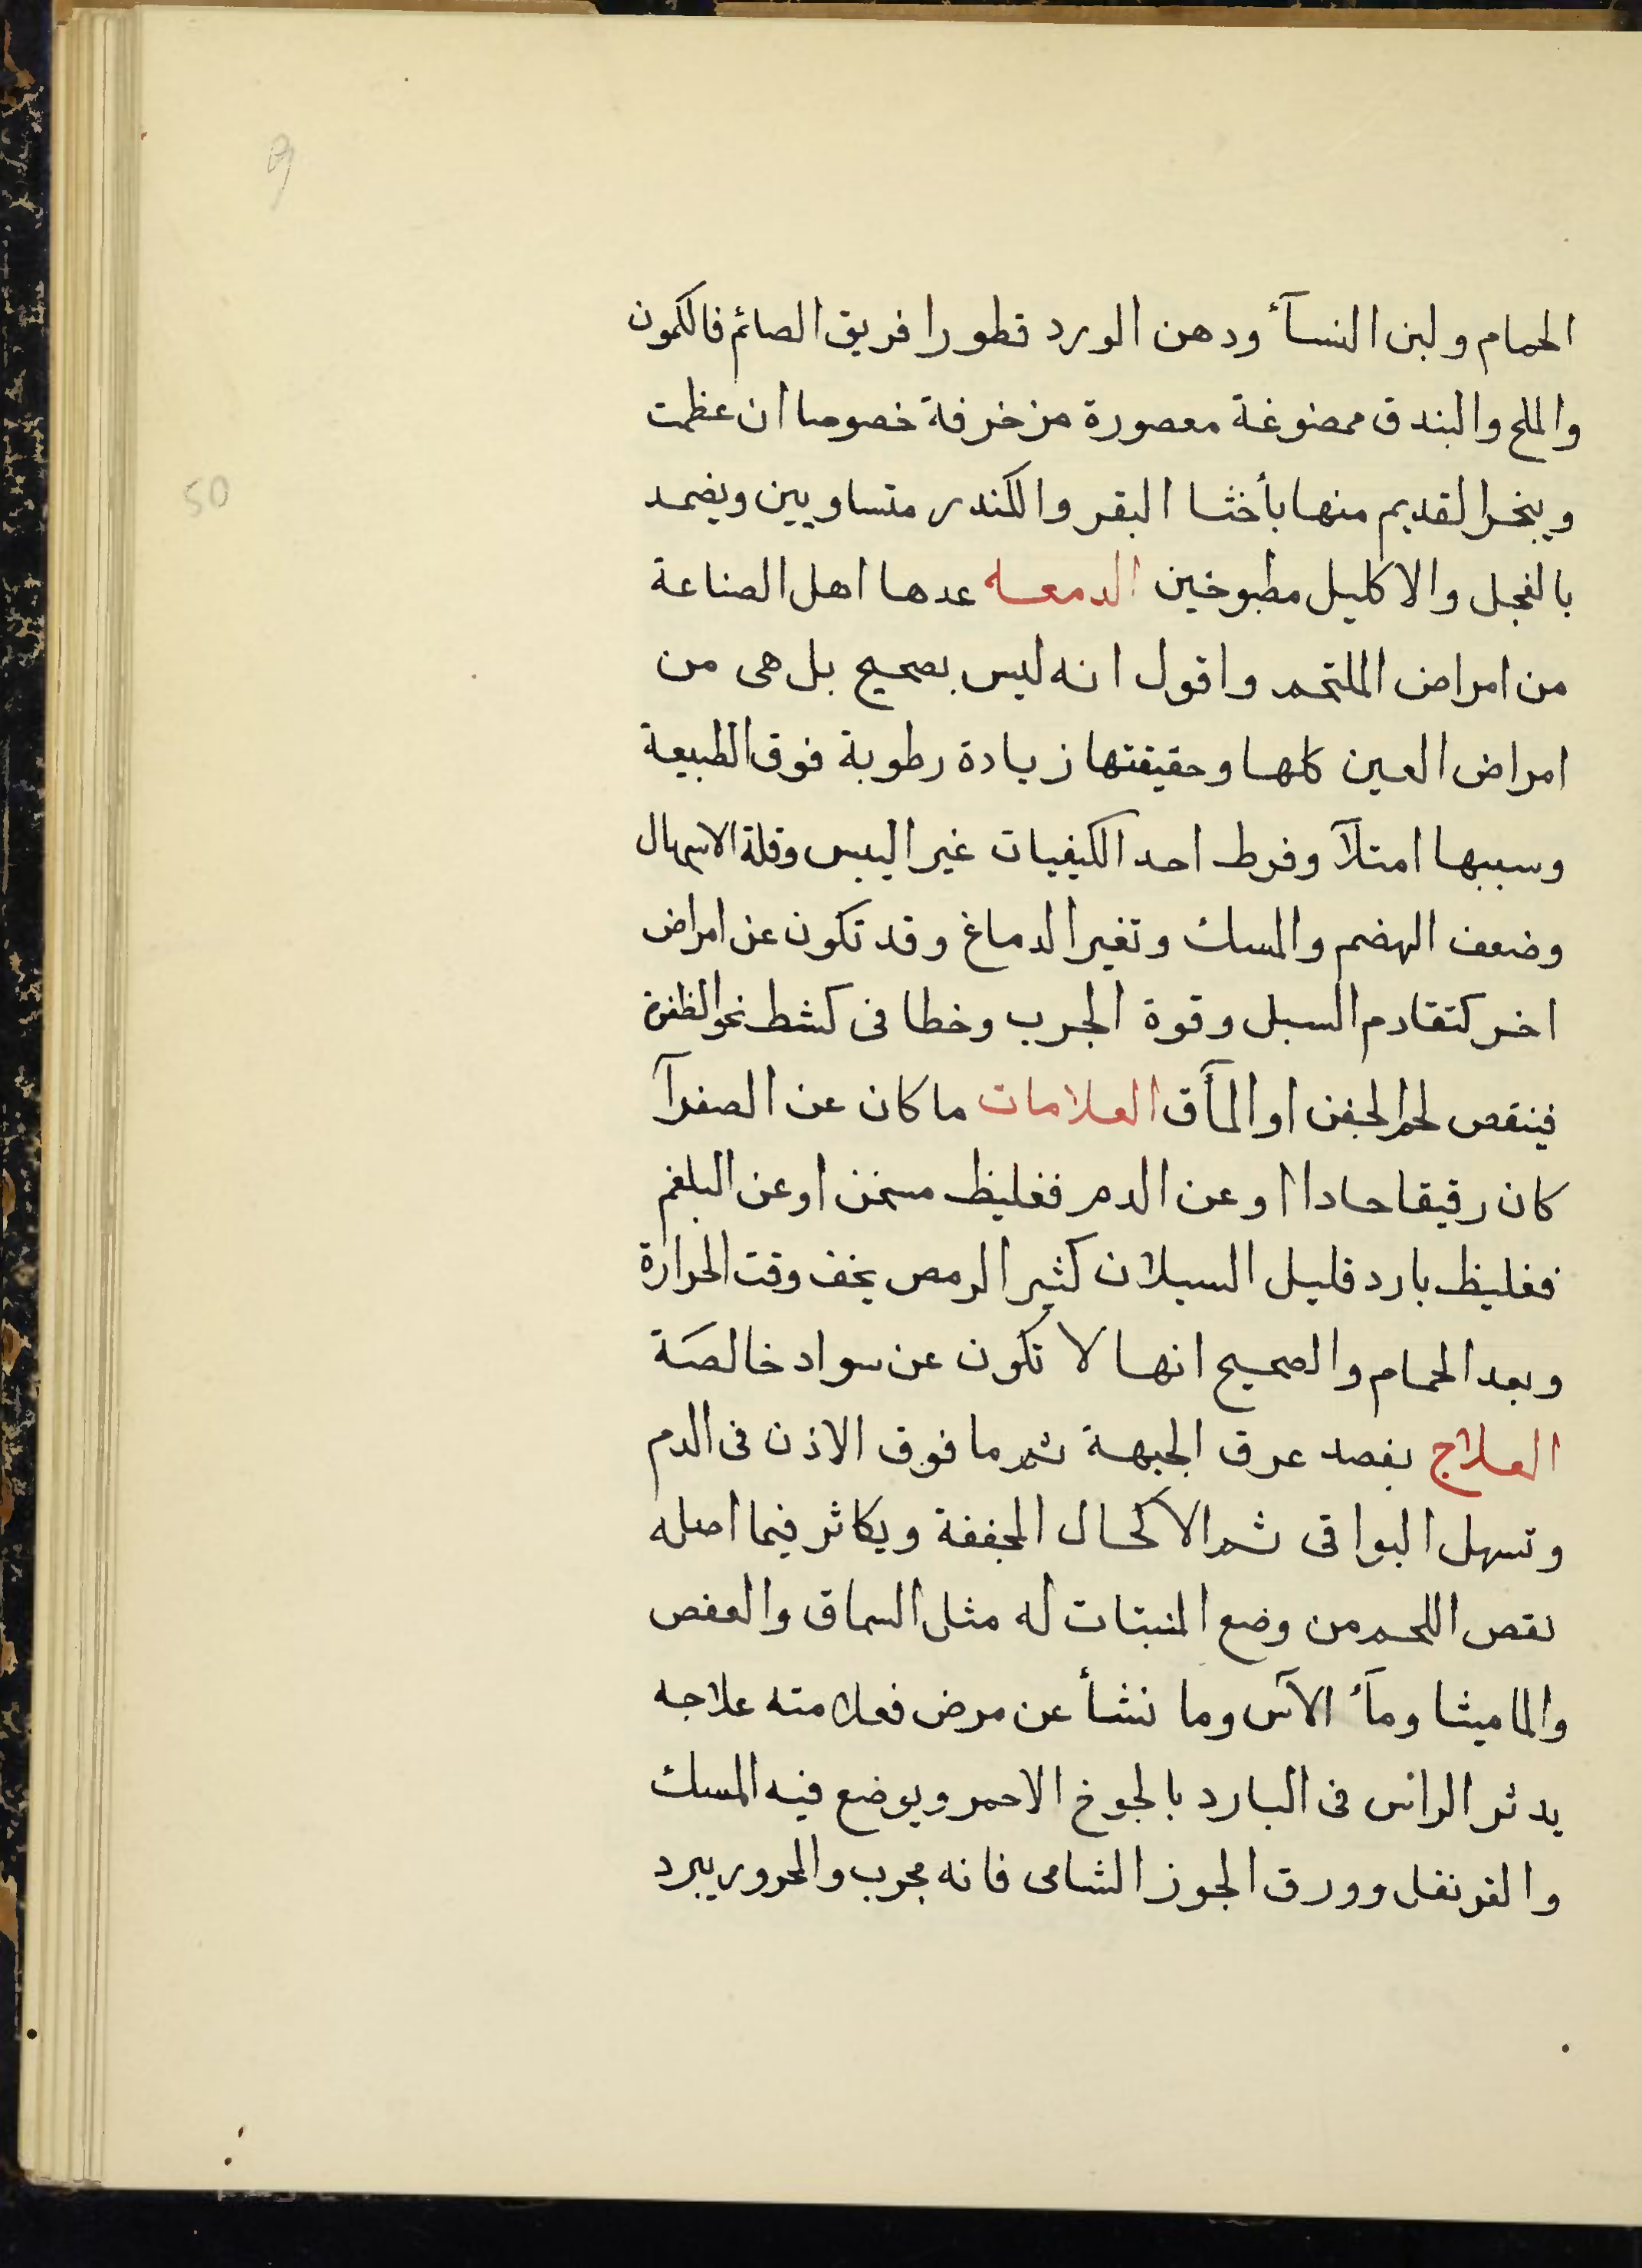 الحمام ولبن النسآء ودهن الورد قطورا فريق الصائم فالكمون
والملح والبندق ممضوغة معصورة من خرفة خصوصا ان عظمت
ويبخر القديم منها بأخثا البقر والكندر متساويين ويضمد
بالفجل والاكليل مطبوخين الدمعه عدها اهل الصناعة
من امراض الملتحم واقول انه ليس بصحيح بل هى من
امراض العين كلها وحقيقتها زيادة رطوبة فوق الطبيعة
وسببها امتلآ وفرط احد الكيفيات غير اليبس وقلة الاسهال
وضعف الهضم والمسك وتغير الدماغ وقد تكون عن امراض
اخر كتقادم السبل وقوة الجرب وخطا فى كشط نحو الظفرة
فينقص لحم الجفن او المآق العلامات ما كان عن الصفرآ
كان رقيقا حادا او عن الدم فغليظ مسخن او عن البلغم
فغليظ بارد قليل السيلان كثير الرمص يخف وقت الحرارة
وبعد الحمام والصحيح انها لا تكون عن سواد خالصة
العلاج يفصد عرق الجبهة ثم ما فوق الاذن فى الدم
وتسهل البواقى ثم الاكحال المجففة ويكاثر فيما اصله
نقص اللحم من وضع المنبتات له مثل السماق والعفص
والماميثا ومآء الآس وما نشأ عن مرض فعلامته علاجه
يدثر الرأس فى البارد بالجوخ الاحمر ويوضع فيه المسك
والقرنفل وورق الجوز الشامى فانه مجرب والمحرور يبرد
50